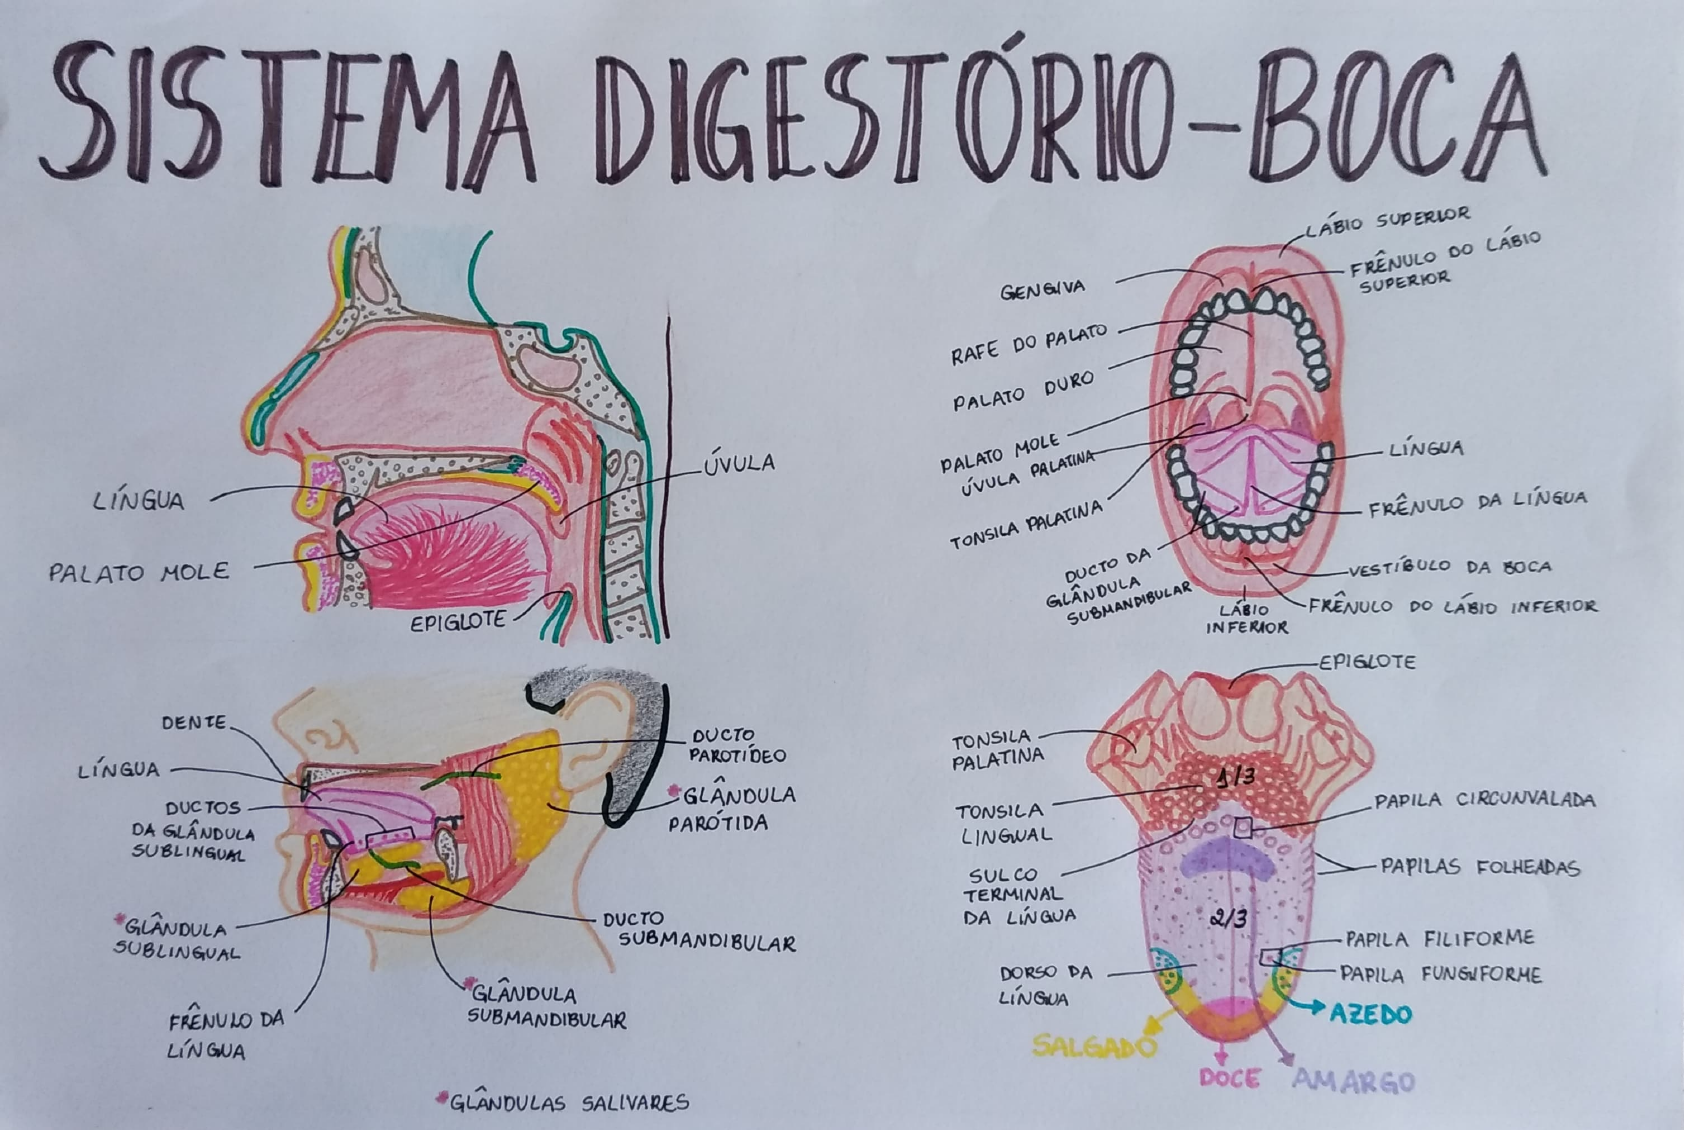 SISTEMA DIGESTÓRIO-BOCA
LÍNGUA
PALATO MOLE
EPIGLOTE
ÚVULA
LÁBIO SUPERIOR
FRÊNULO DO LÁBIO
SUPERIOR
GENGIVA
RAFE DO PALATO
PALATO DURO
PALATO MOLE
ÚVULA PALATINA
TONSILA PALATINA
DUCTO DA
GLÂNDULA
SUBMANDIBULAR
LÁBIO
INFERIOR
LÍNGUA
FRÊNULO DA LÍNGUA
VESTÍBULO DA BOCA
FRÊNULO DO LÁBIO INFERIOR
DENTE
LÍNGUA
DUCTOS
DA GLÂNDULA
SUBLINGUAL
*GLÂNDULA
SUBLINGUAL
FRÊNULO DA
LÍNGUA
DUCTO
PAROTÍDEO
*GLÂNDULA
PARÓTIDA
DUCTO
SUBMANDIBULAR
*GLÂNDULA
SUBMANDIBULAR
*GLÂNDULAS SALIVARES
EPIGLOTE
TONSILA
PALATINA
TONSILA
LINGUAL
SULCO
TERMINAL
DA LÍNGUA
DORSO DA
LÍNGUA
1/3
2/3
PAPILA CIRCUNVALADA
PAPILAS FOLHEADAS
PAPILA FILIFORME
PAPILA FUNGIFORME
AZEDO
SALGADO
DOCE
AMARGO